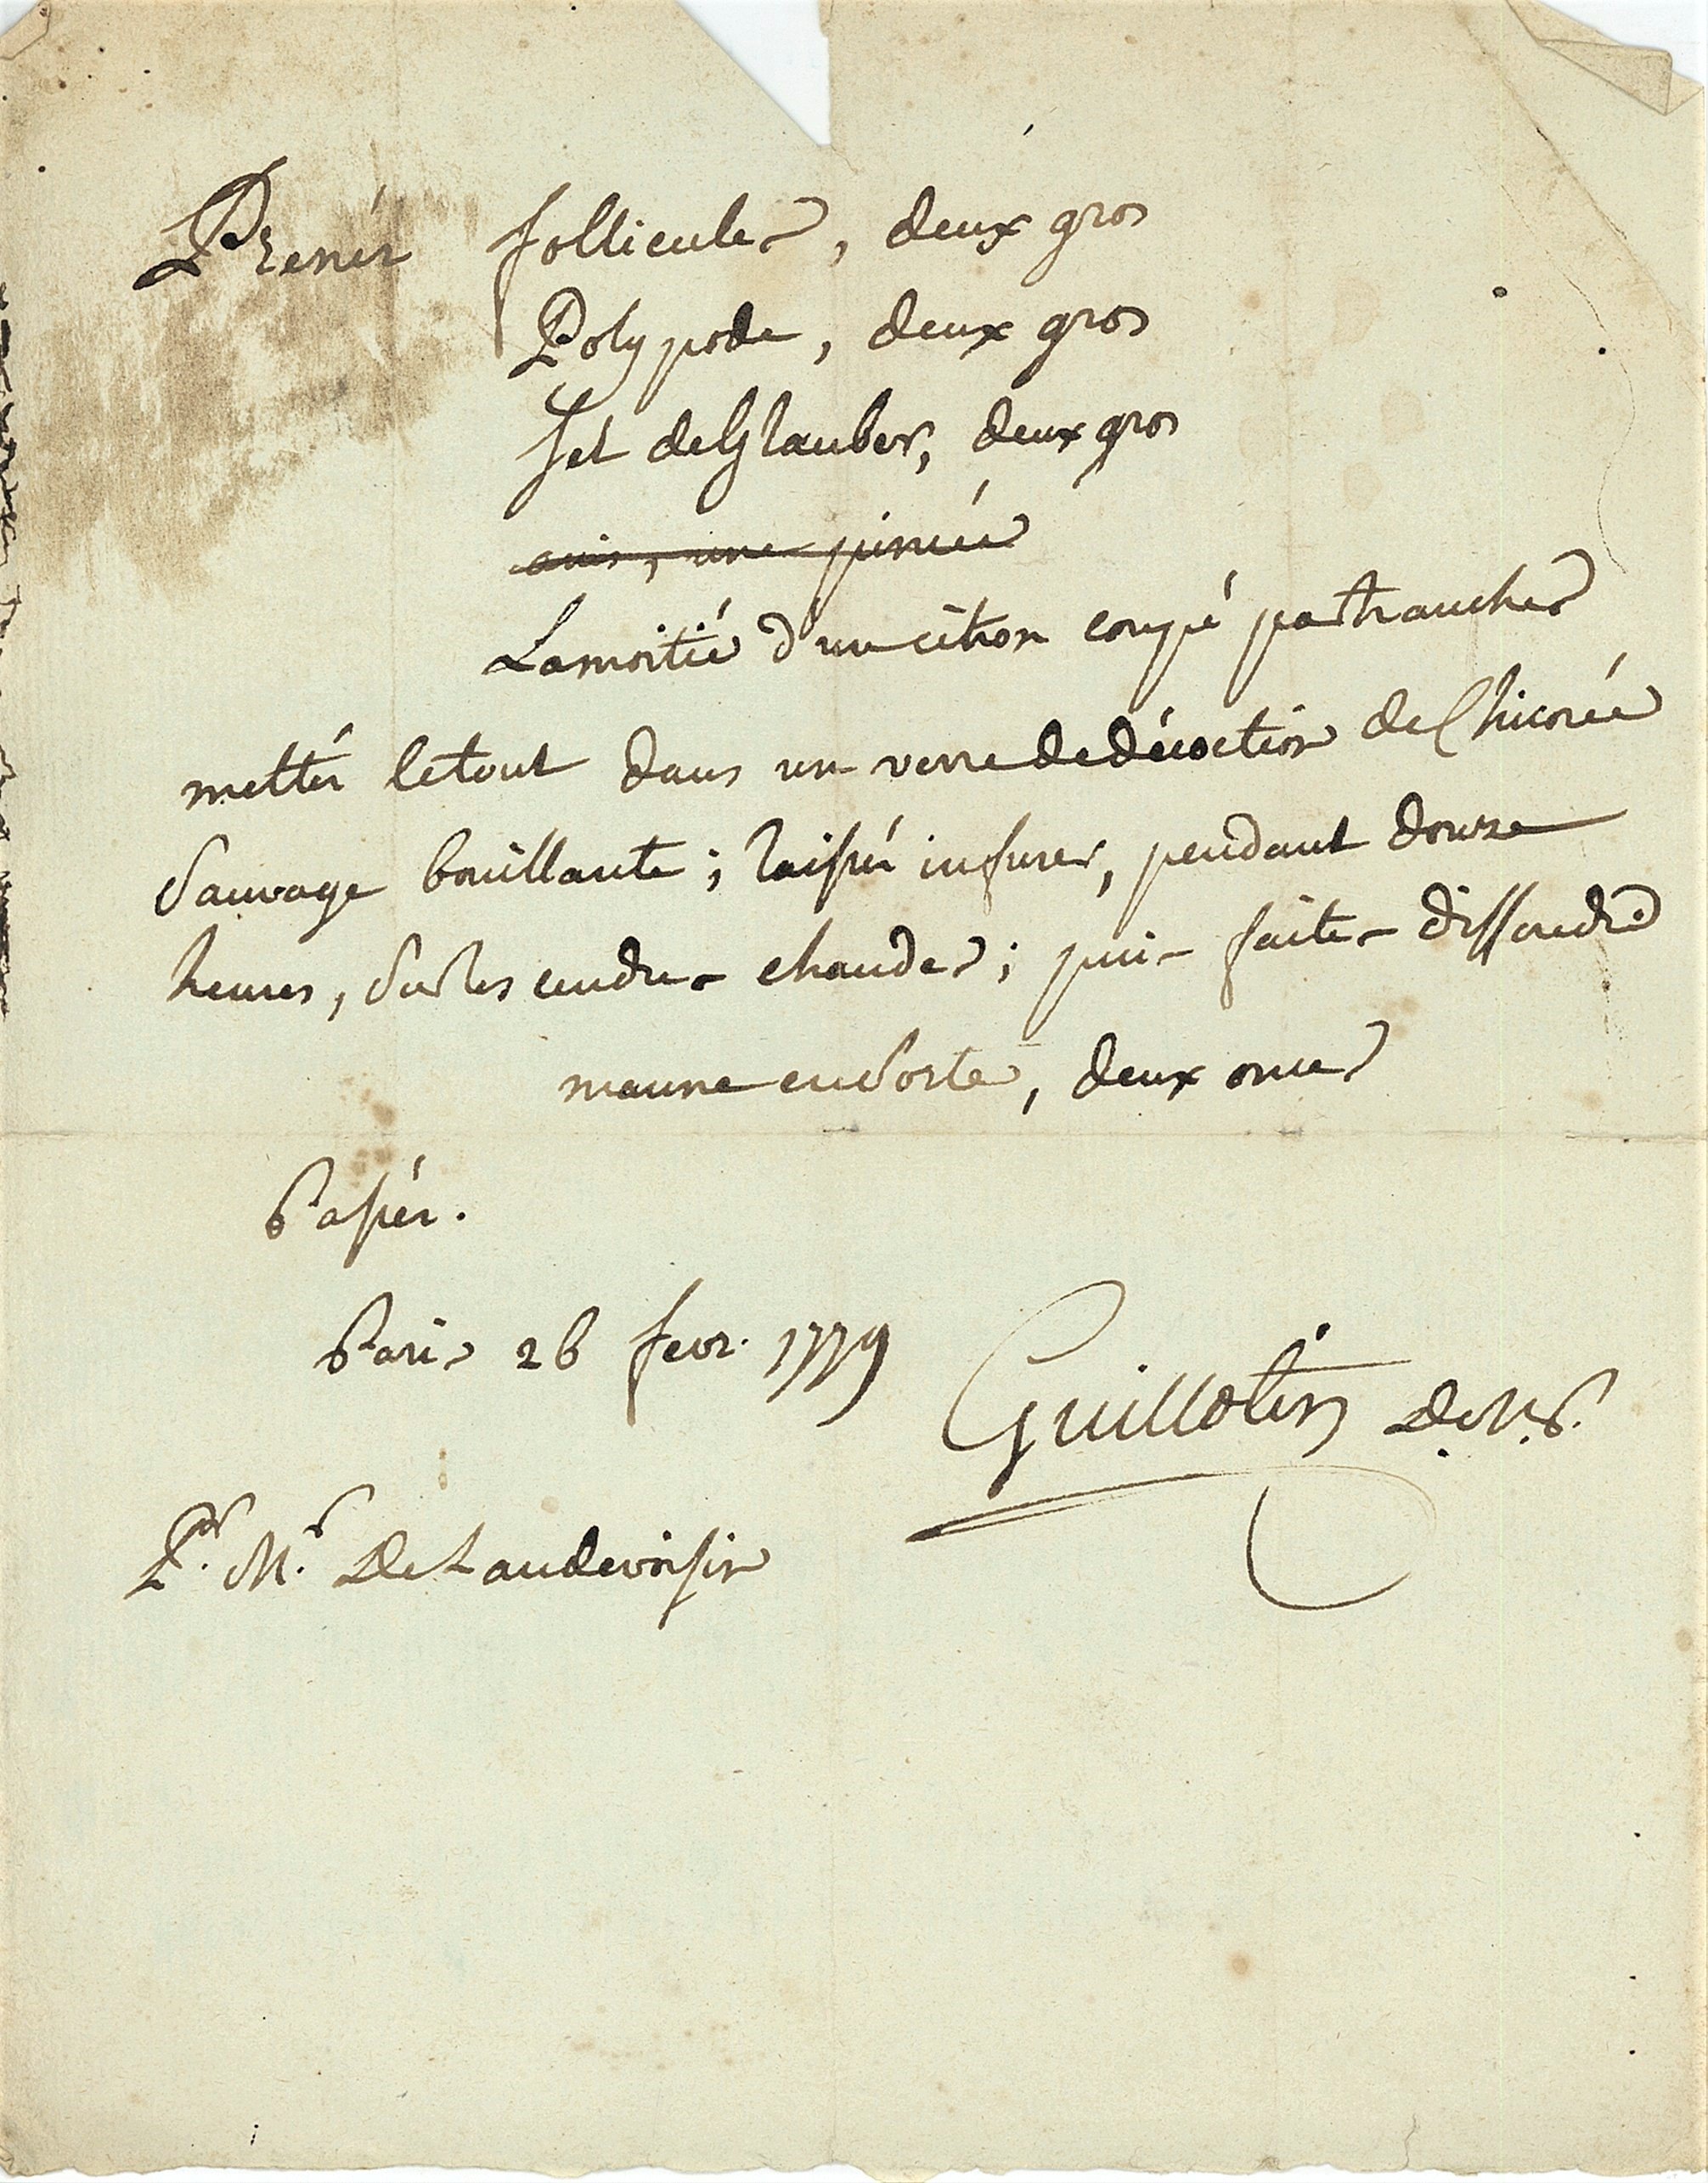 Prenés follicules, deux gros
Polypode, deux gros
Sel de Glauber, deux gros
anis, une pincée
La moitié d'un citron coupé par tranches
mettés le tout dans un verre de décoction de Chicorée
sauvage bouillante ; laissés infuser, pendant douze
heures, sur les cendres chaudes ; puis faites dissoudre
manne en sorte, deux onces
Passés.
Paris 26 fevr. 1779
Guillotin D.M.P.
Pr. Mr. De Laudevoisin